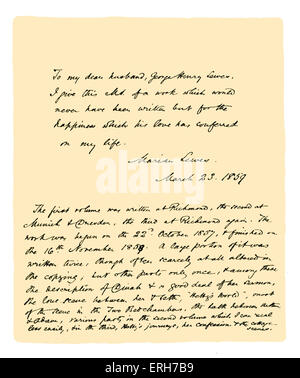 To my dear husband, George Henry Lewes,
I give this MS. of a work which would
never have been written but for the
happiness which his love has conferred
on my life.
Marian Lewes
March 23. 1859
The first volume was written at Richmond, the second at
Munich & Dresden, the third at Richmond again. The
work was begun on the 22nd October 1857, & finished on
the 16th November 1858. A large portion of it was
written twice, though often scarcely at all altered in
the copying, but other parts only once, & among these
the description of Dinah & a good deal of her sermon,
the love scene between her & Seth, "Hetty's World", most
of the scene in the Two Bedchambers, the talk between
& Adam, various parts in the second volume which I can recal
less easily, & in the third, Hetty's journeys, her confession & the cottage
scenes.
alamy
alamy stock photo
ERH7B9
www.alamy.com